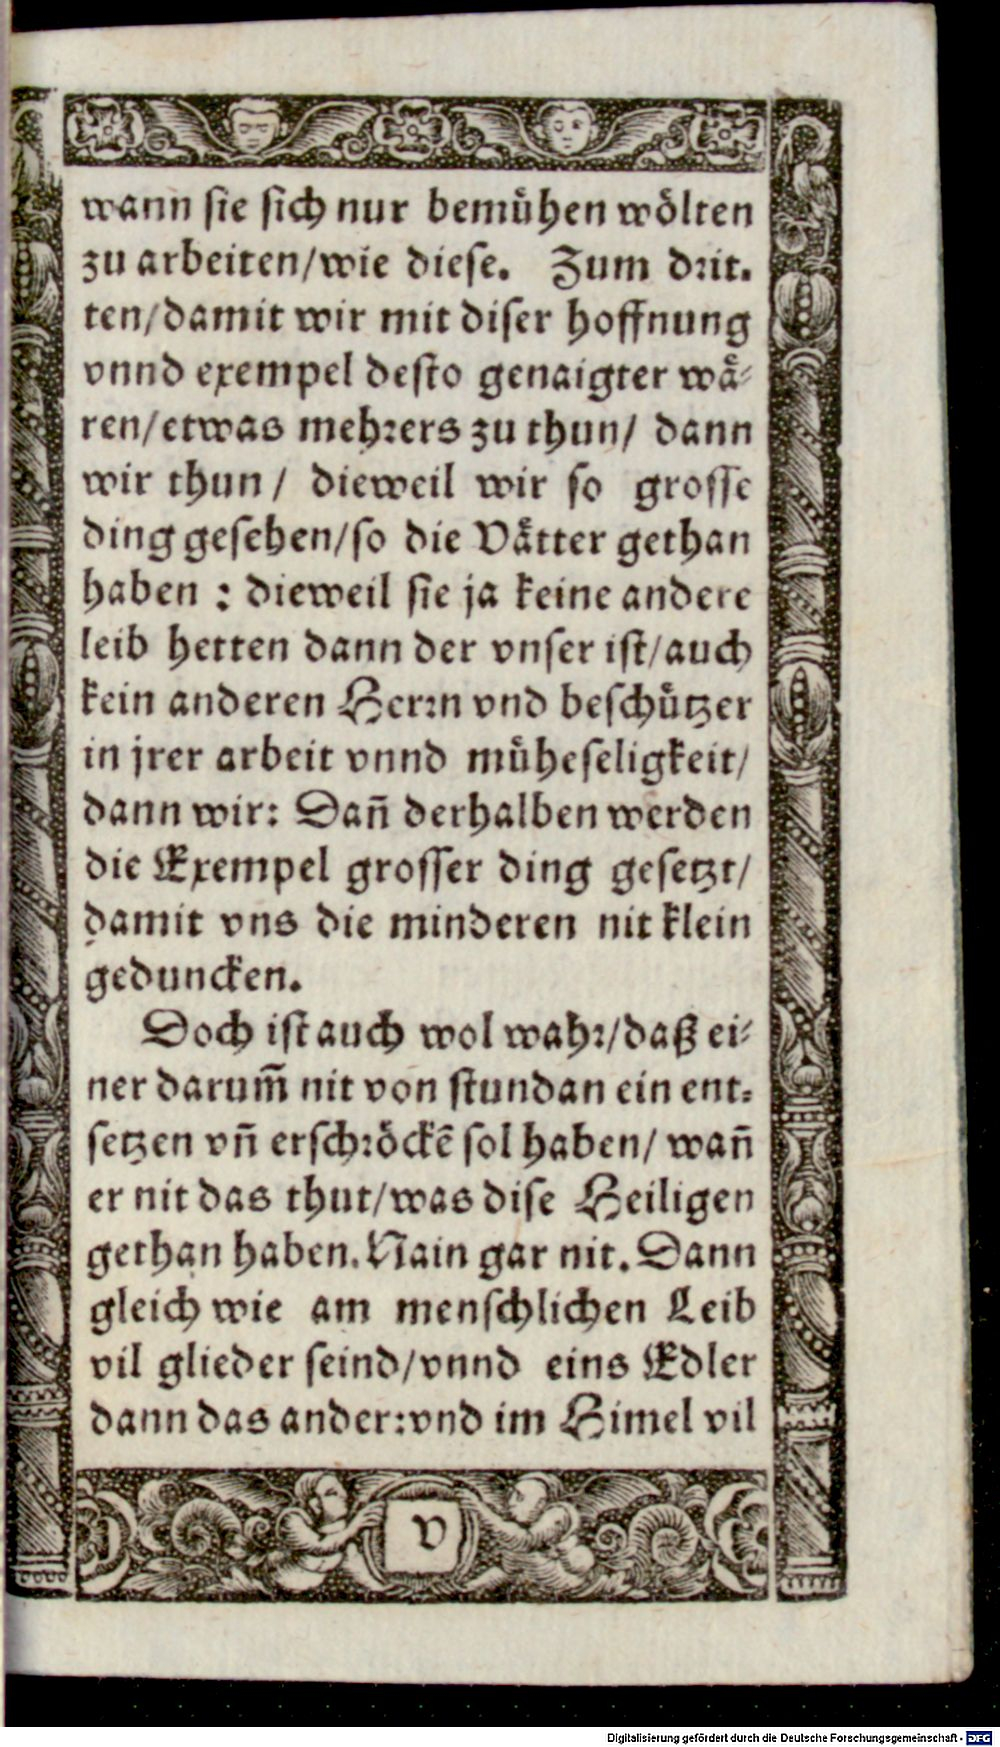 wann sie sich nur bemuͤhen woͤlten
zu arbeiten/wie diese. Zum drit-
ten/damit wir mit diser hoffnung
vnnd exempel desto genaigter waͤ-
ren/etwas mehrers zu thun/ dann
wir thun/ dieweil wir so grosse
ding gesehen/so die Vaͤtter gethan
haben : dieweil sie ja keine andere
leib hetten dann der vnser ist/auch
kein anderen Herrn vnd beschuͤtzer
in jrer arbeit vnnd muͤheseligkeit/
dann wir: Dañ derhalben werden
die Exempel grosser ding gesetzt/
damit vns die minderen nit klein
geduncken.
Doch ist auch wol wahr/daß ei-
ner darum̃ nit von stundan ein ent-
setzen vñ erschroͤckẽ sol haben/ wañ
er nit das thut/was dise Heiligen
gethan haben. Nain gar nit. Dann
gleich wie am menschlichen Leib
vil glieder seind/vnnd eins Edler
dann das ander:vnd im Himel vil
v
Digitalisierung gefördert durch die Deutsche Forschungsgemeinschaft - DFG